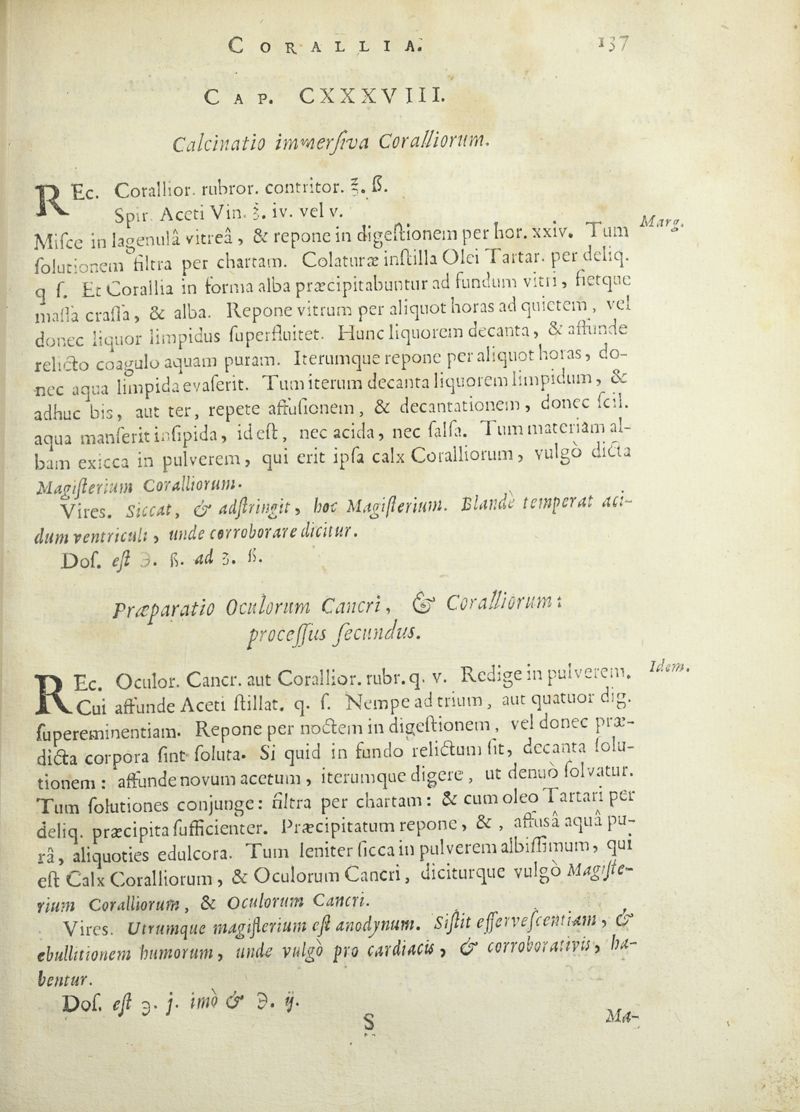 CORALLIA. 137
CAP. CXXXVIII.
Calcinatio immersiva Coralliorum.
REc. Corallior. rubror. contritor. ℥. ß.
Spir. Aceti Vin. ℥. iv. vel v.
Misce in lagenulâ vitreâ, & repone in digestionem per hor. xxiv. Tum Marg.
solutionem filtra per chartam. Colaturæ instilla Olei Tartar. per deliq.
q. s. Et Corallia in forma alba præcipitabuntur ad fundum vitri, fietque
massa crassa, & alba. Repone vitrum per aliquot horas ad quietem, vel
donec liquor limpidus superfluitet. Hunc liquorem decanta, & affunde
relicto coagulo aquam puram. Iterumque repone per aliquot horas, do-
nec aqua limpida evaserit. Tum iterum decanta liquorem limpidum, &
adhuc bis, aut ter, repete affusionem, & decantationem, donec scil.
aqua manserit insipida, id est, nec acida, nec salsa. Tum materiam al-
bam exicca in pulverem, qui erit ipsa calx Coralliorum, vulgo dicta
Magisterium Coralliorum.
Vires. Siccat, & adstringit, hoc Magisterium. Blandè temperat aci-
dum ventriculi, unde corroborare dicitur.
Dos. est ℈. ß. ad ʒ. ß.
Præparatio Oculorum Cancri, & Coralliorum:
processus secundus.
REc. Oculor. Cancr. aut Corallior. rubr. q. v. Redige in pulverem. Idem.
Cui affunde Aceti stillat. q. s. Nempe ad trium, aut quatuor dig.
supereminentiam. Repone per noctem in digestionem, vel donec præ-
dicta corpora sint soluta. Si quid in fundo relictum sit, decanta solu-
tionem: affunde novum acetum, iterumque digere, ut denuo solvatur.
Tum solutiones conjunge: filtra per chartam: & cum oleo Tartari per
deliq. præcipita sufficienter. Præcipitatum repone, &, affusâ aquâ pu-
râ, aliquoties edulcora. Tum leniter sicca in pulverem albissimum, qui
est Calx Coralliorum, & Oculorum Cancri, diciturque vulgò Magiste-
rium Coralliorum, & Oculorum Cancri.
Vires. Utrumque magisterium est anodynum. Sistit effervescentiam, &
ebullitionem humorum, unde vulgò pro cardiacis, & corroborativis, ha-
bentur.
Dos. est ℈. j. imò & ℈. ij.
S Ma-